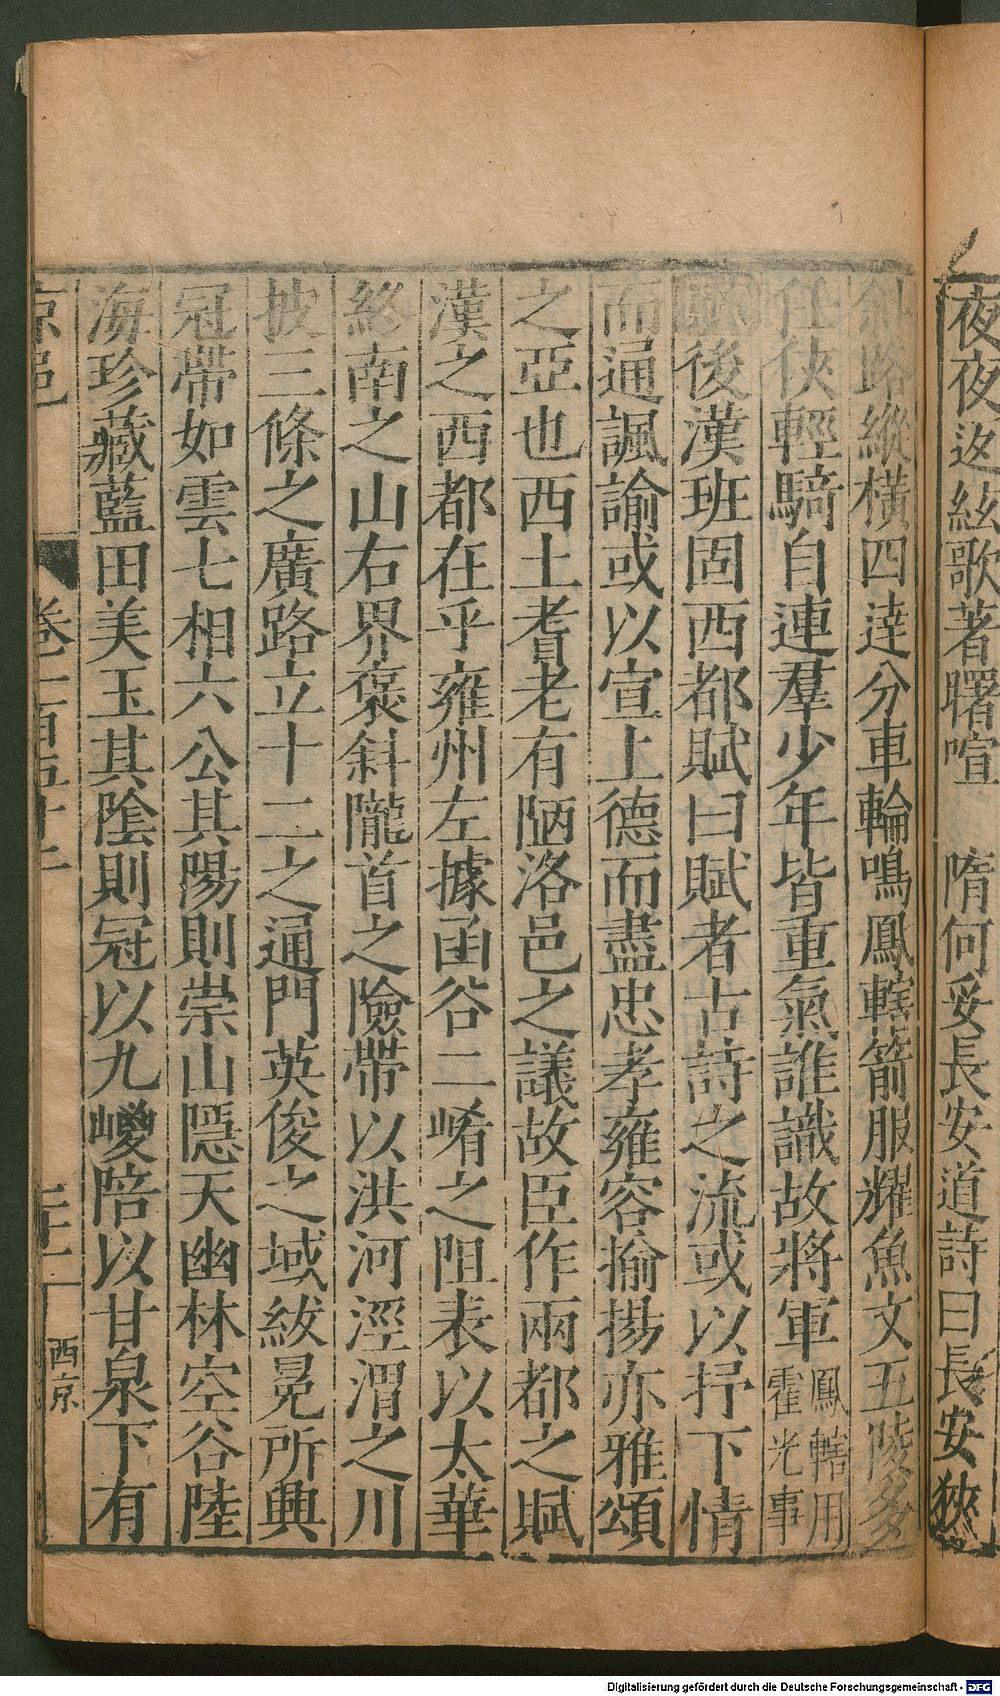 夜夜迩絃歌著曙喧　隋何妥長安道詩曰長安狹
斜路縱橫四達分車輪鳴鳳轄箭服耀魚文五陵多
任俠輕騎自連羣少年皆重氣誰識故將軍鳳轄用霍光事
賦後漢班固西都賦曰賦者古詩之流或以抒下情
而通諷諭或以宣上德而盡忠孝雍容揄揚亦雅頌
之亞也西土耆老有陋洛邑之議故臣作兩都之賦
漢之西都在乎雍州左據函谷二崤之阻表以太華
終南之山右界褒斜隴首之險帶以洪河涇渭之川
披三條之廣路立十二之通門英俊之域紱冕所興
冠帶如雲七相六公其陽則崇山隱天幽林空谷陸
海珍藏藍田美玉其陰則冠以九嵕陪以甘泉下有
京邑　卷一百五十五　西京
Digitalisierung gefördert durch die Deutsche Forschungsgemeinschaft - DFG